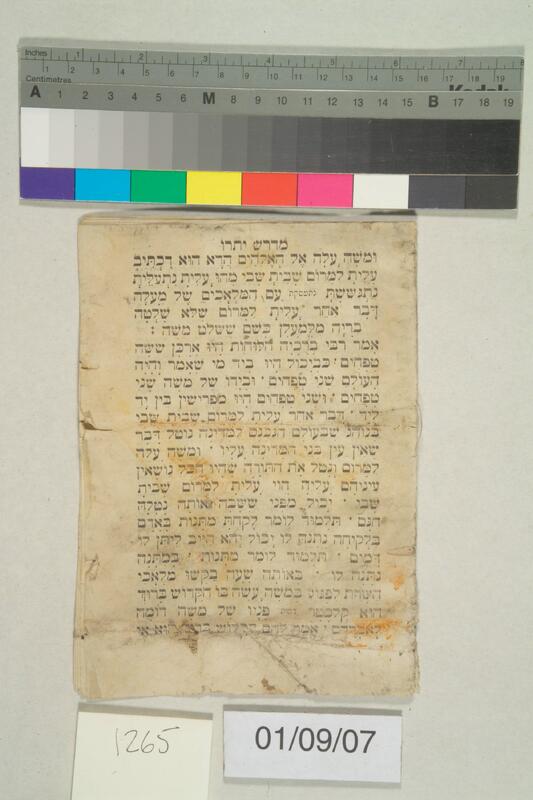 Inches 1 2 3 4 5 6 7 8
Centimetres 1 2 3 4 5 6 7 8 9 10 11 12 13 14 15 16 17 18 19
Kodak
A 1 2 3 4 5 6 M 8 9 10 11 12 13 14 15 B 17 18 19
מדרש יתרו
ומשה עלה אל האלהים הדא הוא דכתיב
עלית למרום שבית שבי מהו עלית נתעלית
נתגששת נתעסקת עם המלאכים של מעלה
דבר אחר עלית למרום שלא שלטה
בריה מלמעלן כשם ששלט משה :
אמר רבי ברכיה הלוחות היו ארכן ששה
טפחים כביכול היו ביד מי שאמר והיה
העולם שני טפחים ובידו של משה שני
טפחים ושני טפחים היו מפרישין בין יד
ליד דבר אחר עלית למרום שבית שבי
בנוהג שבעולם הנכנס למדינה נוטל דבר
שאין עין בני המדינה עליו ומשה עלה
למרום ונטל את התורה שהיו הכל נושאין
עיניהם עליה הוי עלית למרום שבית
שבי יכול מפני ששבה אותה נטלה
חנם תלמוד לומר לקחת מתנות באדם
בלקיחה נתנה לו יכול יהא חייב ליתן לו
דמים תלמוד לומר מתנות במתנה
נתנה לו באותה שעה בקשו מלאכי
השרת לפגוע במשה עשה בו הקדוש ברוך
הוא קלסטר פניו של משה דומה
לאברהם אמר להם הקדוש ברוך הוא אי
1265
01/09/07